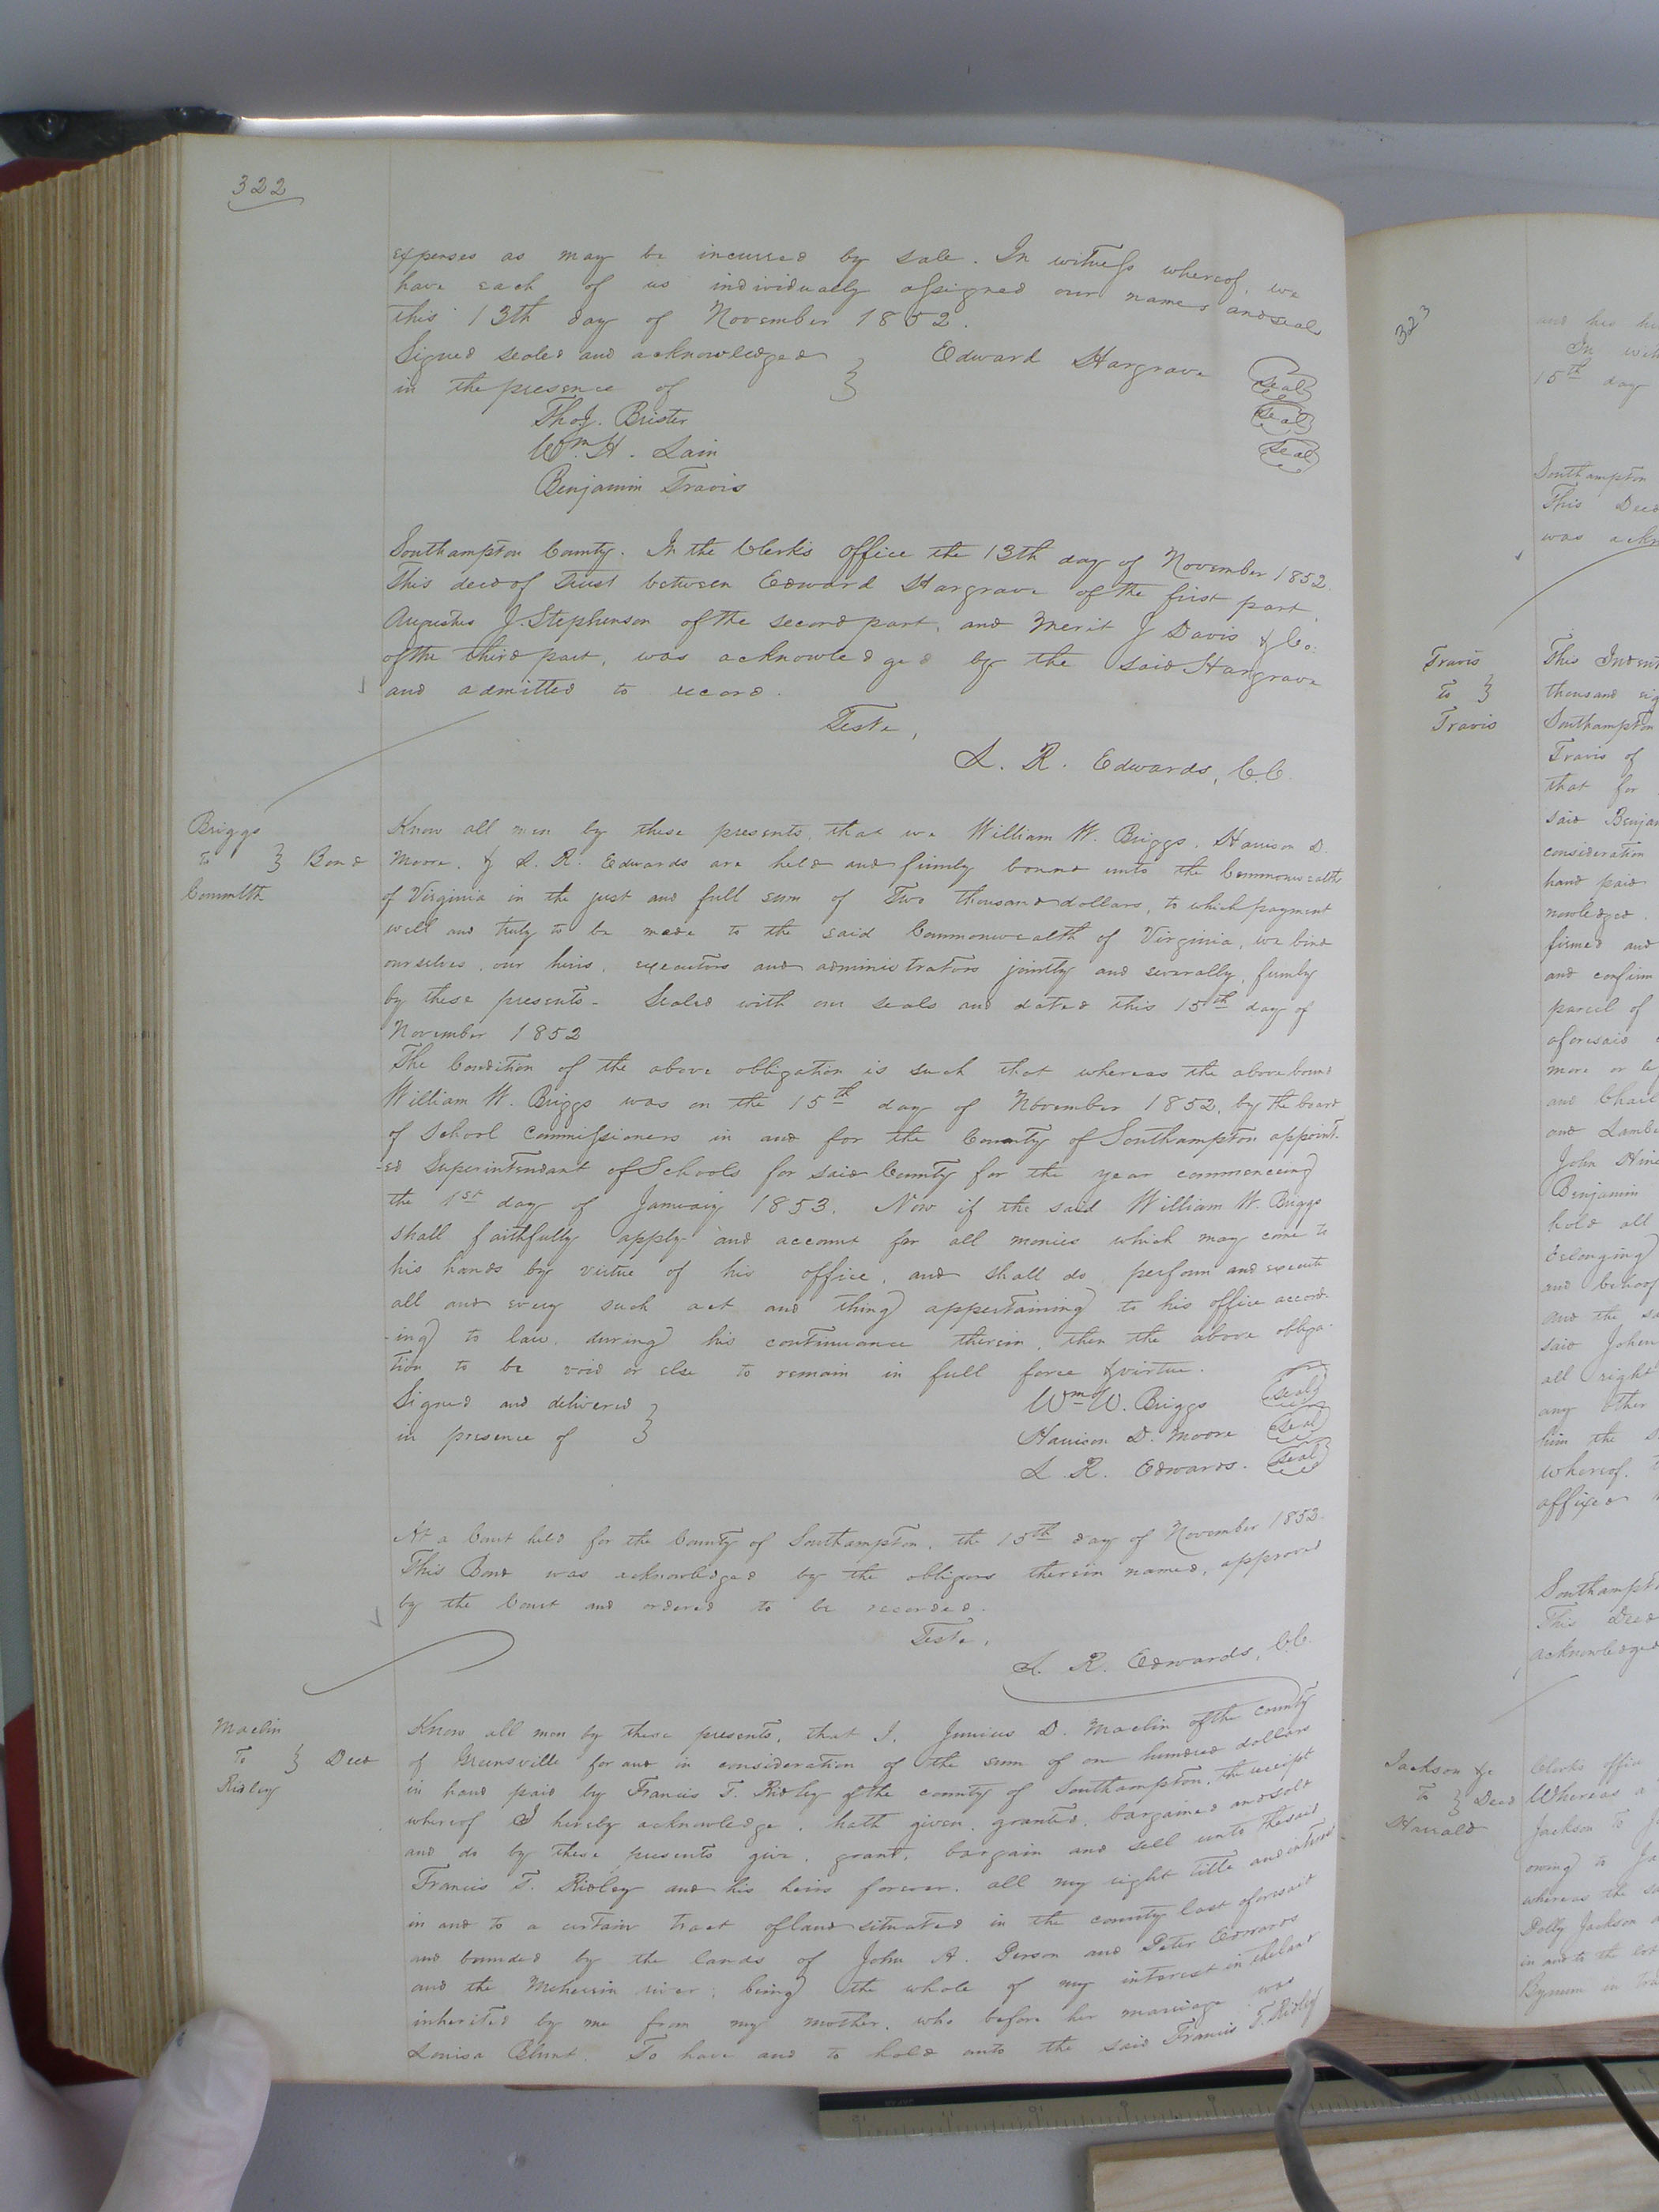 322
expenses as may be incurred by sale. In witness whereof, we
have each of us individually assigned our names and seal
this 13th day of November 1852.
Signed sealed and acknowledged } Edward Hargrave seal
in the presence of seal
Thos J. Brister seal
Wm. H. Lain
Benjamin Travis
Southampton County. In the Clerk's office the 13th day of November 1852.
This deed of Trust between Edward Hargrave of the first part,
Augustus J. Stephenson of the second part, and Merit J Davis & Co.
of the third part, was acknowledged by the said Hargrave
and admitted to record.
Teste,
L. R. Edwards, C.C.
Briggs
to } Bond
Commlth
Know all men by these presents, that we William W. Briggs, Harrison D.
Moore, & L. R. Edwards are held and firmly bound unto the Commonwealth
of Virginia in the just and full sum of Two thousand dollars, to which payment
well and truly to be made to the said Commonwealth of Virginia, we bind
ourselves, our heirs, executors and administrators jointly and severally, firmly
by these presents - Sealed with our seals and dated this 15th day of
November 1852
The Condition of the above obligation is such that whereas the above bound
William W. Briggs was on the 15th day of November 1852, by the board
of School Commissioners in and for the County of Southampton appoint-
-ed Superintendant of Schools for said County for the year commencing
the 1st day of January 1853. Now if the said William W. Briggs
shall faithfully apply and account for all monies which may come to
his hands by virtue of his office, and shall do perform and execute
all and every such act and thing appertaining to his office accord-
-ing to law, during his continuance therein, then the above obliga-
tion to be void or else to remain in full force & virtue.
Signed and delivered } Wm W. Briggs seal
in presence of Harrison D. Moore seal
L. R. Edwards. seal
At a Court held for the County of Southampton, the 15th day of November 1852.
This Bond was acknowledged by the obligors therein named, approved
by the Court and ordered to be recorded.
Teste,
L. R. Edwards, C.C.
Maclin
To } Deed
Ridley
Know all men by these presents, that I, Junius D. Maclin of the county
of Greensville for and in consideration of the sum of one hundred dollars
in hand paid by Francis T. Ridley of the county of Southampton, the receipt
whereof I hereby acknowledge, hath given, granted, bargained and sold
and do by these presents give, grant, bargain and sell unto the said
Francis T. Ridley and his heirs forever, all my right title and interest
in and to a certain tract of land situated in the county last aforesaid
and bounded by the lands of John A. Person and Peter Edwards
and the Meherrin river, being the whole of my interest in the land
inherited by me from my mother, who before her marriage was
Louisa Blunt. To have and to hold unto the said Francis T. Ridley
323
and his he
In wit
15th day
Southampton
This Deed
was ackn
Travis
to }
Travis
This Indent
thousand eig
Southampton
Travis of
that for
said Benja
consideration
hand paid
nowledged.
firmed and
and confirm
parcel of
aforesaid
more or le
and Charl
and Lamb
John Hine
Benjamin
hold all
belonging
and behoof
and the sa
said John
all right
any other
him the s
whereof, t
affixed
Southampt
This Deed
acknowledged
Jackson &c
To } Deed
Harrald
Clerks offic
Whereas a
Jackson to J
owing to Ja
whereas the sa
Dolly Jackson a
in and to the
Bynum in